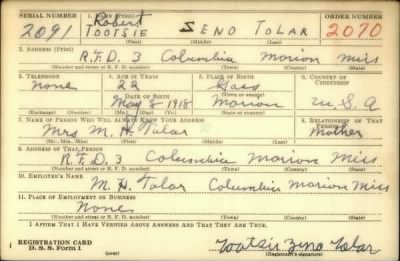 SERIAL NUMBER 1. NAME (Print) ORDER NUMBER
Robert
2091 TOOTSIE SENO TOLAR 2070
(First) (Middle) (Last)
2. ADDRESS (Print)
R.F.D. 3 Columbia Marion Miss
(Number and street or R. F. D. number) (Town) (County) (State)
3. TELEPHONE 4. AGE IN YEARS 5. PLACE OF BIRTH 6. COUNTRY OF CITIZENSHIP
None 22 Goss
DATE OF BIRTH (Town or county)
May 8 1918 Marion U. S. A
(Exchange) (Number) (Mo.) (Day) (Yr.) (State or country)
7. NAME OF PERSON WHO WILL ALWAYS KNOW YOUR ADDRESS 8. RELATIONSHIP OF THAT PERSON
Mrs M. H. Tolar Mother
(Mr., Mrs., Miss) (First) (Middle) (Last)
9. ADDRESS OF THAT PERSON
R.F.D. 3 Columbia Marion Miss
(Number and street or R. F. D. number) (Town) (County) (State)
10. EMPLOYER'S NAME
M. H. Tolar Columbia Marion Miss
11. PLACE OF EMPLOYMENT OR BUSINESS
None
(Number and street or R. F. D. number) (Town) (County) (State)
I AFFIRM THAT I HAVE VERIFIED ABOVE ANSWERS AND THAT THEY ARE TRUE.
REGISTRATION CARD Tootsie Zeno Tolar
D. S. S. Form 1 (over) (Registrant's signature)